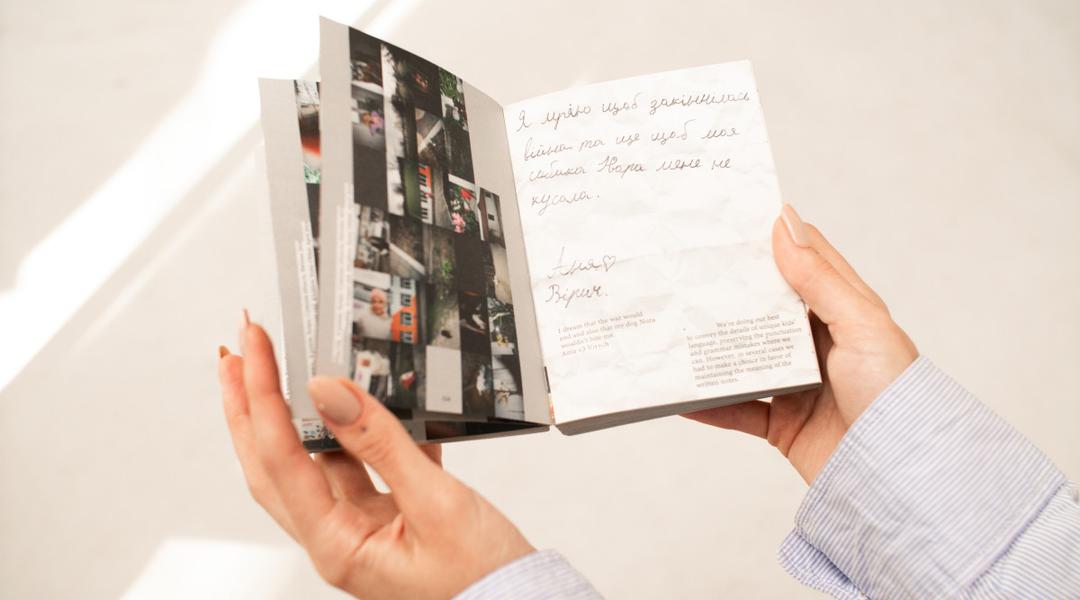 Я мрію щоб закіннілась
війна та ще щоб моя
собака Нора мене не
кусала.
Аня♡
Вірич.
I dream that the war would
end and also that my dog Nora
wouldn't bite me.
Ania <3 Virych
We're doing our best
to convey the details of unique kids'
language, preserving the punctuation
and grammar mistakes where we
can. However, in several cases we
had to make a choice in favor of
maintaining the meaning of the
written notes.